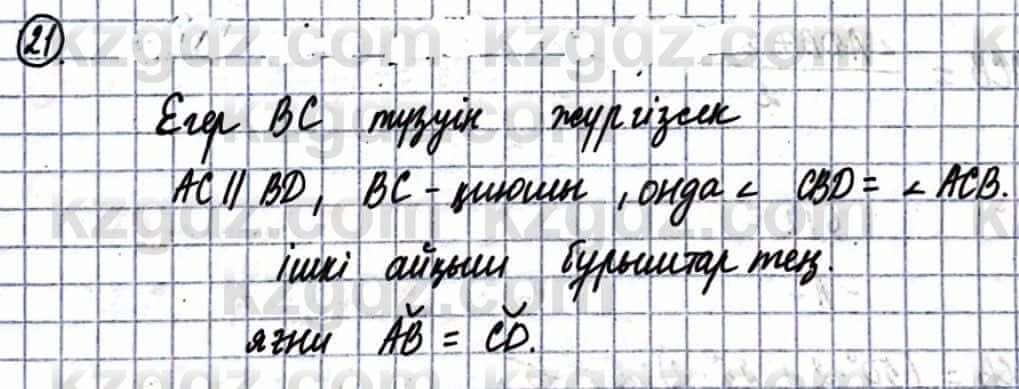 21.
Егер BC түзуін жүргізсек
AC || BD, BC - қиюшы, онда ∠ CBD = ∠ ACB.
ішкі айқыш бұрыштар тең.
яғни A͝B = C͝D.